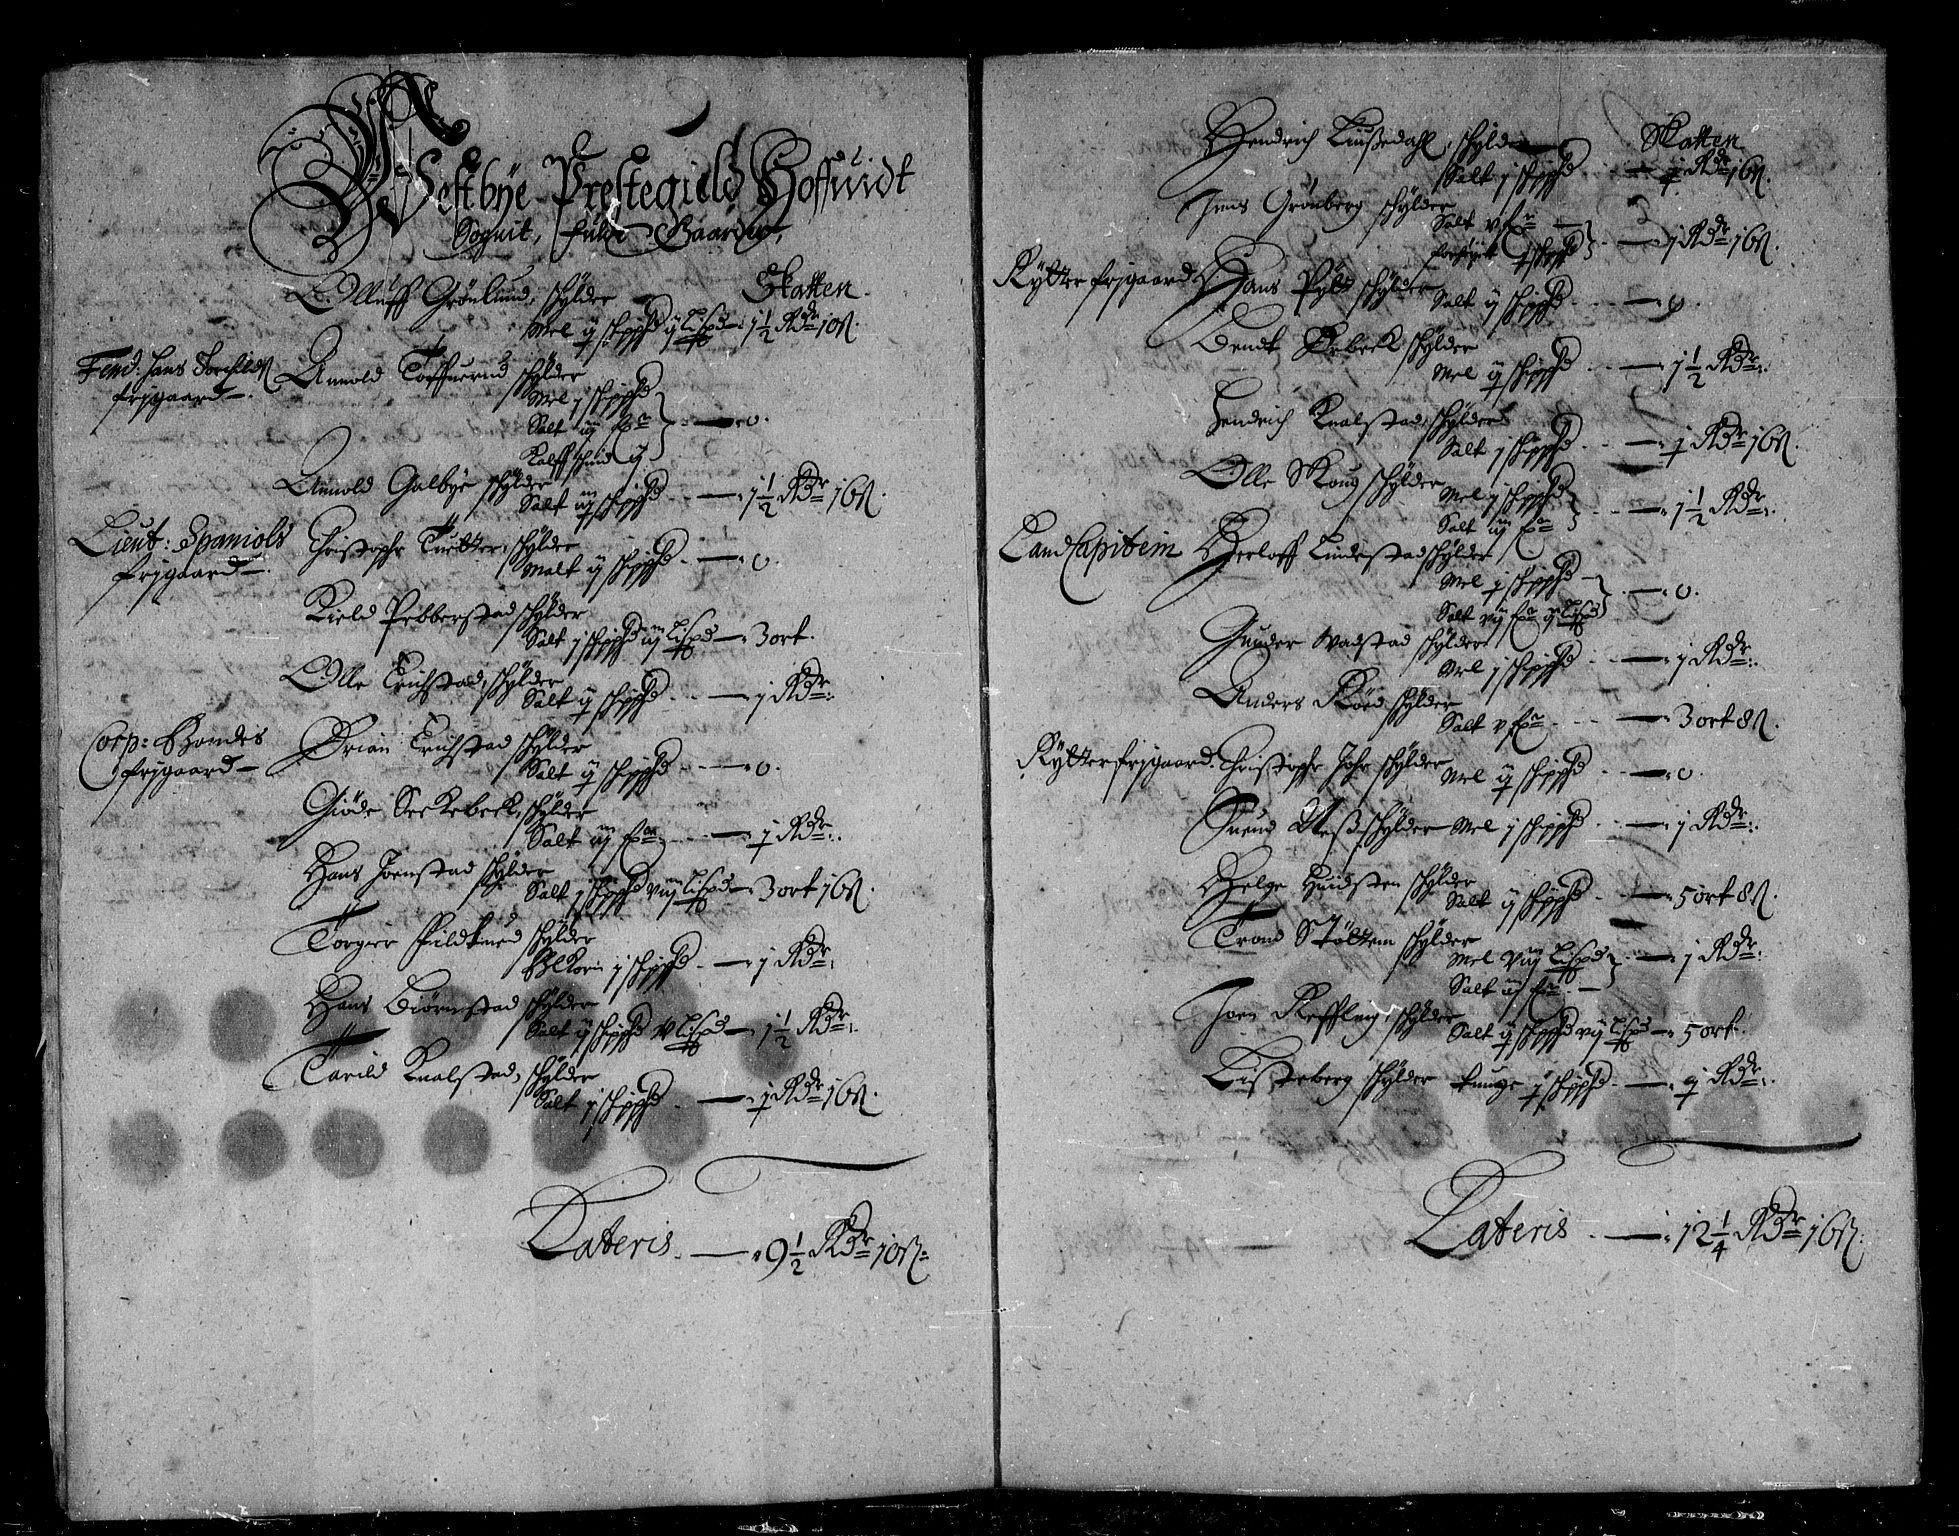 Westbÿe Prestegield Hoffuidt
Sognit, fulde Gaarder,
Skatten.
Olluff Grönlund, schÿlder
Mel ij schippd ij Lispd — 1 1/2 Rdr 10 ß.
Fend: Hans Torchilds
frijgaard —
Amold Toffuerud schÿlder
Mel j schippd
Salt iij fr
Kalffschind ij — 0.
Amold Galbÿe schÿlder
Salt iij schippd — 1 1/2 Rdr 16 ß.
Lieut: Spaniols
frijgaard —
Christopher Tuetter, schÿlder
Malt ij schippd — 0.
Kield Pebberstad schÿlder
Salt j schippd iiij Lispd — 3 ort.
Olle Erichstad, schÿlder
Salt ij schippd — j Rdr:
Corp: Bondes
frijgaard —
Brian Erichstad schÿlder
Salt ij schippd — 0.
Giöde Seckebeck, schÿlder
Salt iij fr — j Rdr:
Hans Joenstad schÿlder
Salt j schippd viij Lispd — 3 ort 16 ß.
Torgier Huidkued schÿlder
Blkorn j schippd — j Rdr:
Hans Biörnstad schÿlder
Salt ij schippd v Lispd — 1 1/2 Rdr:
Tarild Knalstad, schÿlder
Salt j schippd — j Rdr 16 ß.
Lateris — 9 1/2 Rdr 10 ß
Skatten
Hendrich Liußedahl, schÿlder
Salt j schippd — j Rdr 16 ß.
Jens Grönberg schÿlder
Salt v fr —
j schippd — j Rdr 16 ß.
Rÿtter frijgaard Hans Pÿtt schÿlder
Salt ij schippd — 0.
Bendt Ørbeck schÿlder
Mel ij schippd — 1 1/2 Rdr:
Hendrich Knalstad, schÿlder
Salt j schippd — j Rdr 16 ß.
Olle Skoug schÿlder
Mel j schippd
Salt iij fr — 1 1/2 Rdr:
Land Capitein Herloff Lindestad schÿlder
Mel j schippd —
Salt vij fr ij Lispd — 0.
Gunder Wadstad schÿlder
Mel j schippd — j Rdr:
Anders Röed schÿlder
Salt v fr — 3 ort 8 ß.
Rÿtterfrijgaard. Christopher Johr schÿlder
Mel ij schippd — 0.
Suend Aaß schÿlder Mel j schippd — j Rdr:
Helge Huidsten schÿlder
Salt ij schippd — 5 ort 8 ß.
Trond Stöltten schÿlder
Mel viij Lispd
Salt iij fr — j Rdr:
Joen Reffling, schÿlder
Salt ij schippd vij Lispd — 5 ort.
Listeberg schÿlder tunge j schippd — j Rdr:
Lateris — 12 1/4 Rdr 16 ß.